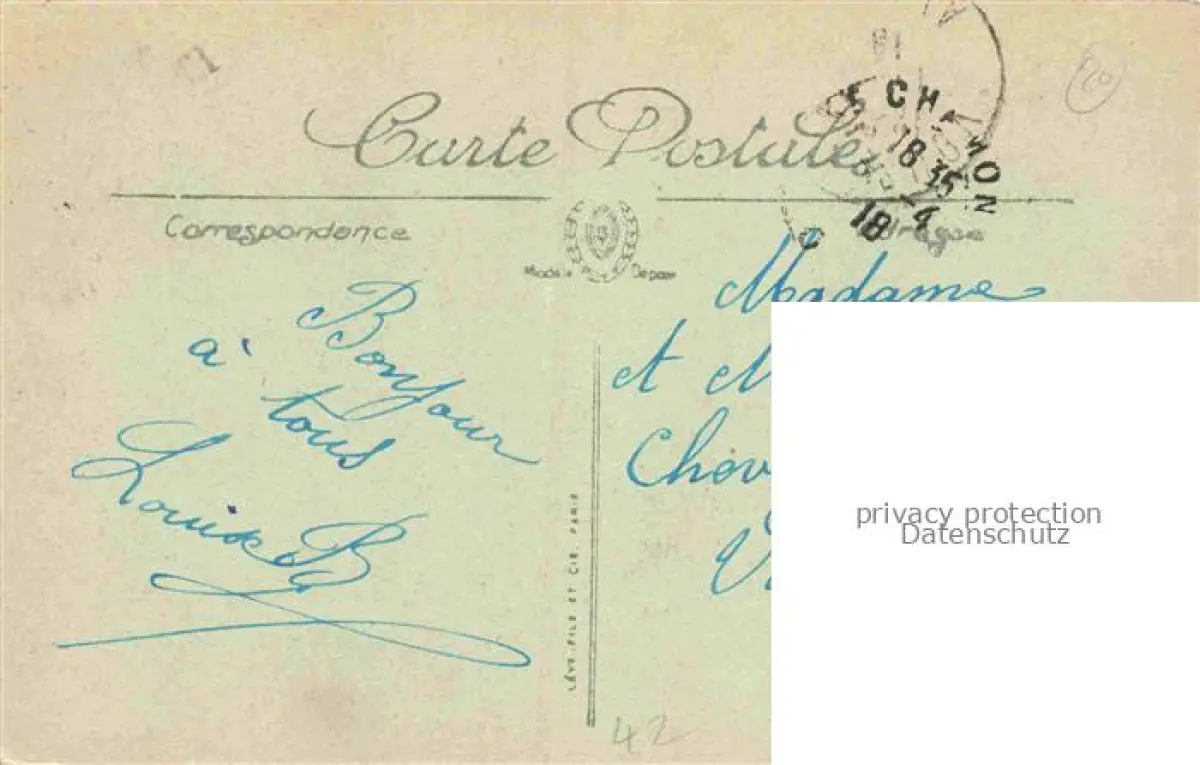 Carte Postale
CHAMON
18 35
18 4
Correspondance
Modèle Déposé
Madame
et M
Chov
V
Bonjour
à tous
Louise B
LÉVY FILS ET CIE, PARIS
privacy protection
Datenschutz
42
20